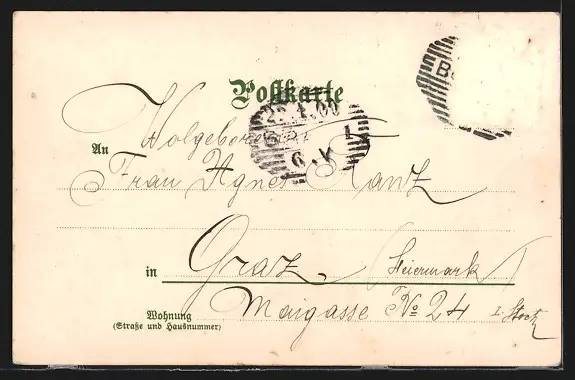 Postkarte
B
6.V 1
An Wolgeborene
Frau Agnes Kanz
in Graz, (Steiermark)
Wohnung
(Straße und Hausnummer)
Maigasse No 24 I. Stock